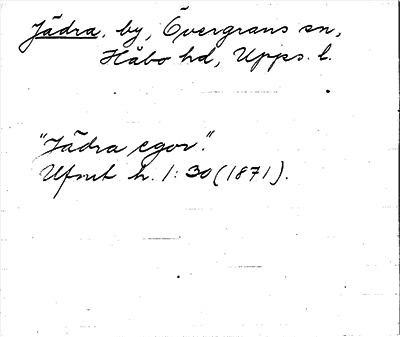 Jädra, by, Övergrans sn,
Håbo hd, Upps. l.
"Jädra egor."
Ufmt h. 1: 30 (1871).